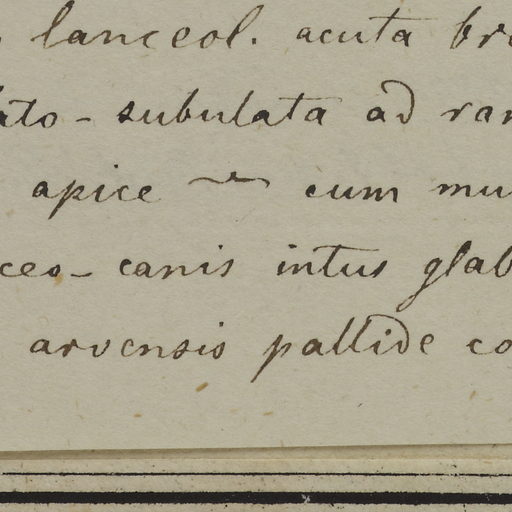 lanceol. acuta bra
ato - subulata ad ram
apice cum mu
ceo - canis intus glab
arvensis pallide co